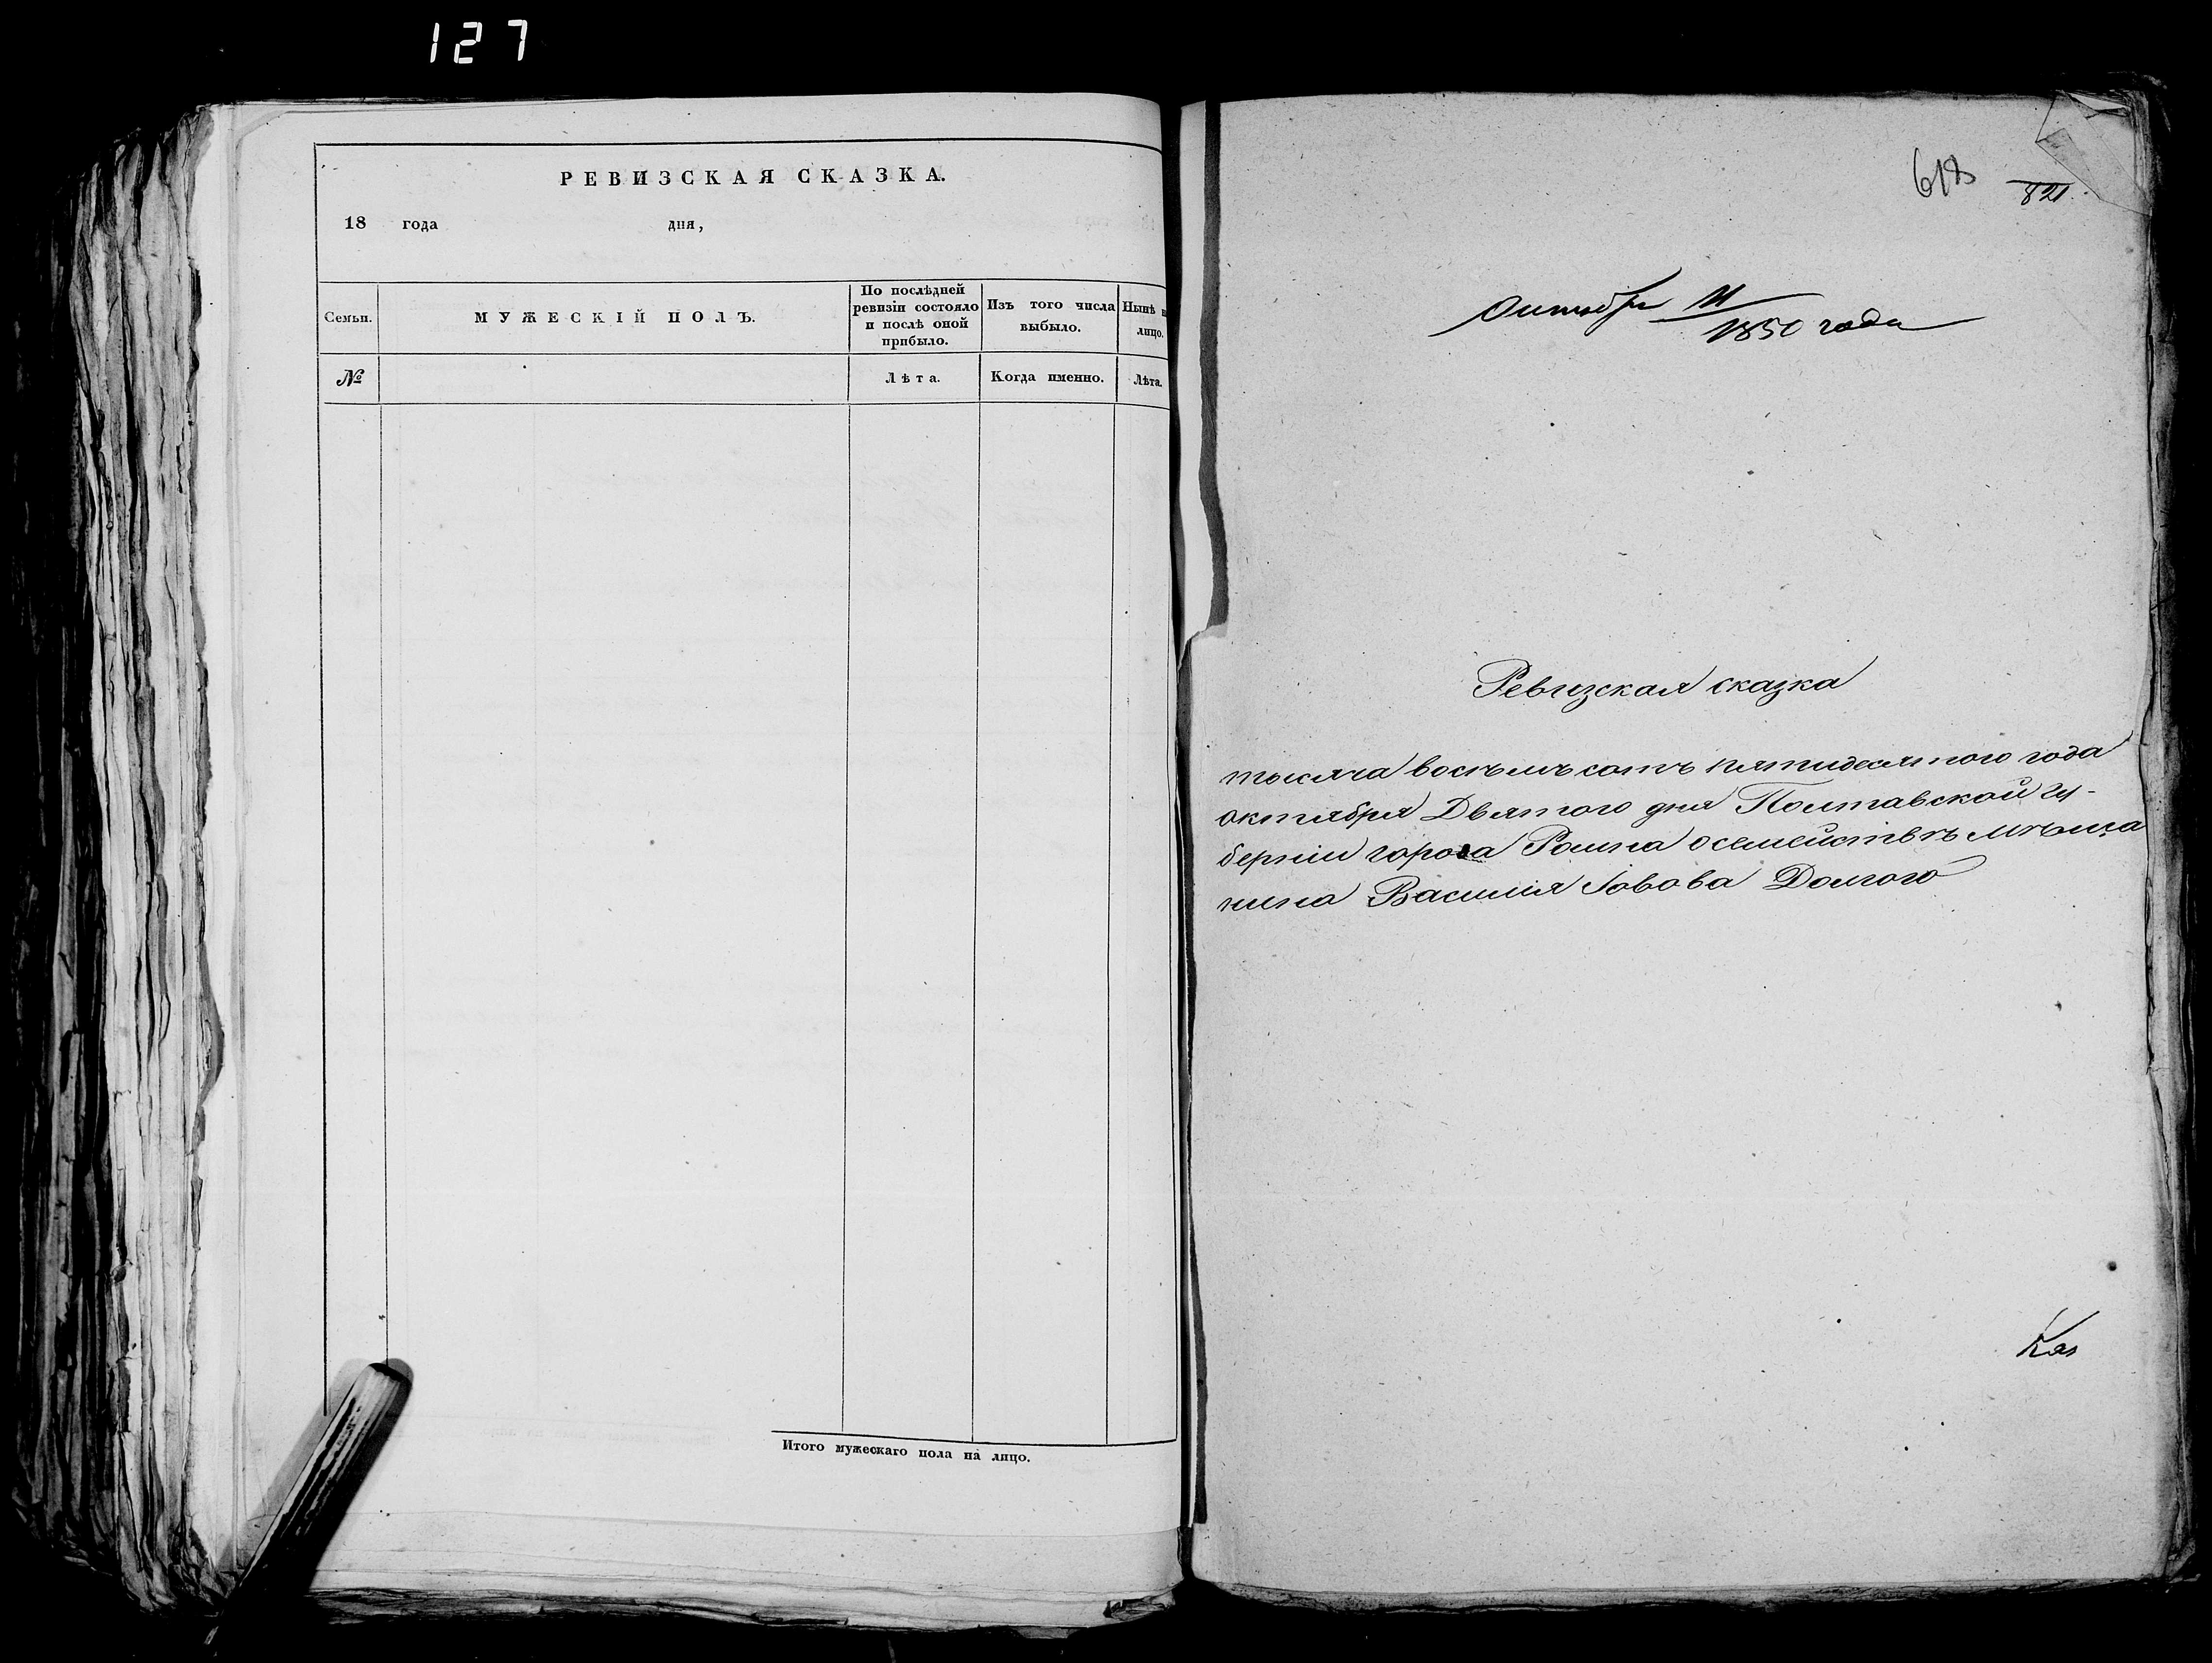 127
РЕВИЗСКАЯ СКАЗКА.
18 года дня,
Семьи.
МУЖЕСКІЙ ПОЛЪ.
По послѣдней
ревизіи состояло
и послѣ оной
прибыло.
Изъ того числа
выбыло.
Нынѣ н
лицо.
№
Лѣта.
Когда именно.
Лѣта.
Итого мужескаго пола на лицо.
618
821.
Октября 11
1850 года
Ревизская сказка
тысяча восѣмъ сотъ пятидесятого года
октября Двятого дня Полтавской гу-
берніи города Ромна осемействѣ мѣща
нина Василия Іовова Долгого
Каз